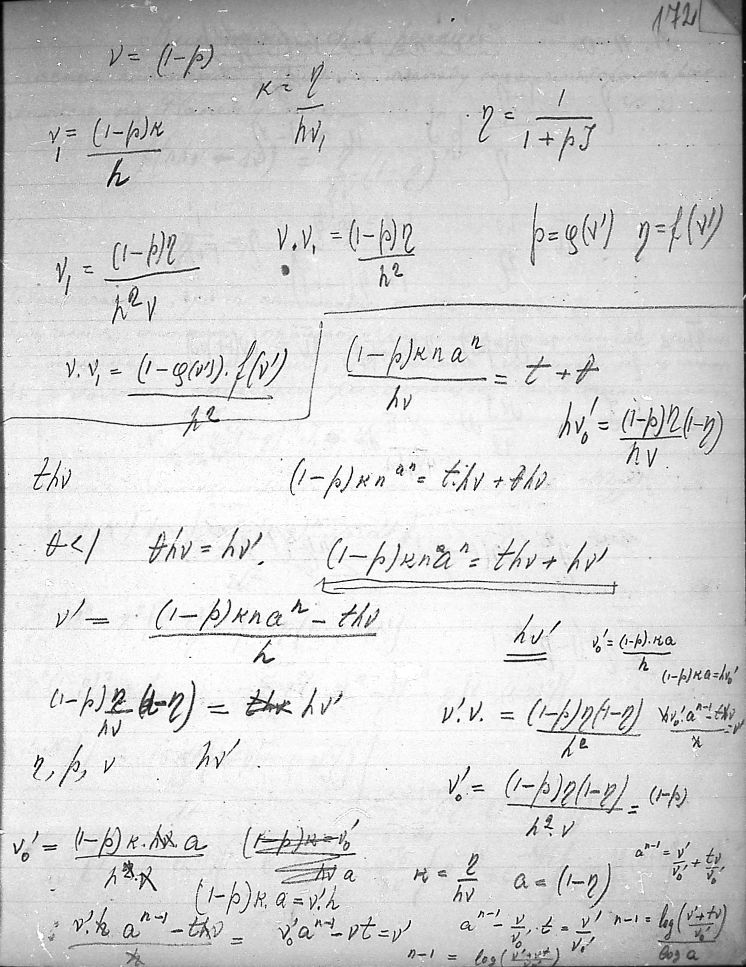 172
ν = (1-p)
κ = η/hν₁
η = 1/(1+pJ)
ν₁ = (1-p)κ/h
ν.ν₁ = (1-p)η/h²
p = φ(ν') η = f(ν')
ν₁ = (1-p)η/h²ν
ν.ν₁ = (1-φ(ν')).f(ν')/h²
(1-p)κnaⁿ/hν = t + θ
hν₀' = (1-p)η(1-η)/h.ν
thν
(1-p)κn^aⁿ = t.hν + θhν
θ<1 θhν = hν'.
(1-p)κnaⁿ = thν + hν'
ν' = (1-p)κnaⁿ - thν/h
hν'
ν₀' = (1-p).κa/h
(1-p)κa = hν₀'
(1-p)η/hν (1-η) = hν'
ν'.ν. = (1-p)η(1-η)/h²
hν₀'.aⁿ⁻¹ - thν/h = ν'
η, p, ν hν'
ν₀' = (1-p)η(1-η)/h².ν = (1-p)
ν₀' = (1-p)κ.hν a/h².ν
(1-p)κ = ν₀'/hν a
(1-p)κ.a = ν'.h
κ = η/hν a = (1-η)
aⁿ⁻¹ = ν'/ν₀' + tν/ν₀'
ν'.h aⁿ⁻¹ - thν/h =
ν₀'aⁿ⁻¹ - νt = ν'
aⁿ⁻¹ - ν/ν₀.t = ν'/ν₀'
n-1 = log(ν'+tν/ν₀')/log a
n-1 = log(ν'+νt/ν₀')